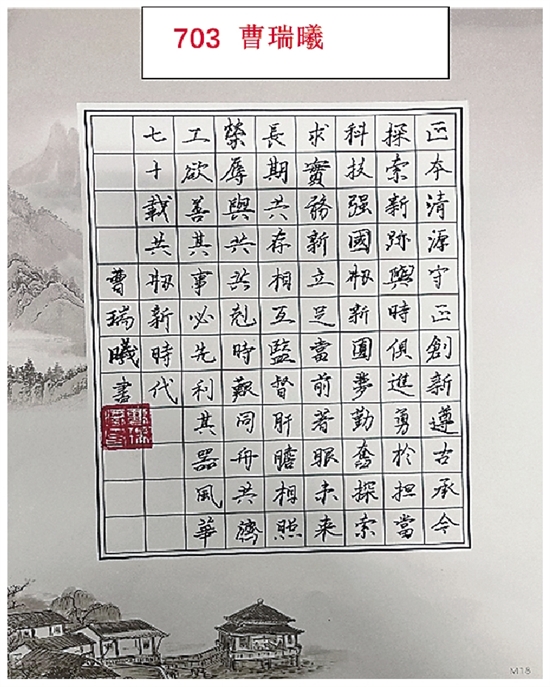 703 曹瑞曦
正本清源守正創新遵古承今
探索新跡與時俱進勇於担當
科技强國籾新圓夢勤奮探索
求實務新立足當前著眼未来
長期共存相互監督肝膽相照
榮辱與共共尅時艱同舟共濟
工欲善其事必先利其器風華
七十載共籾新時代
曹瑞曦書
M18